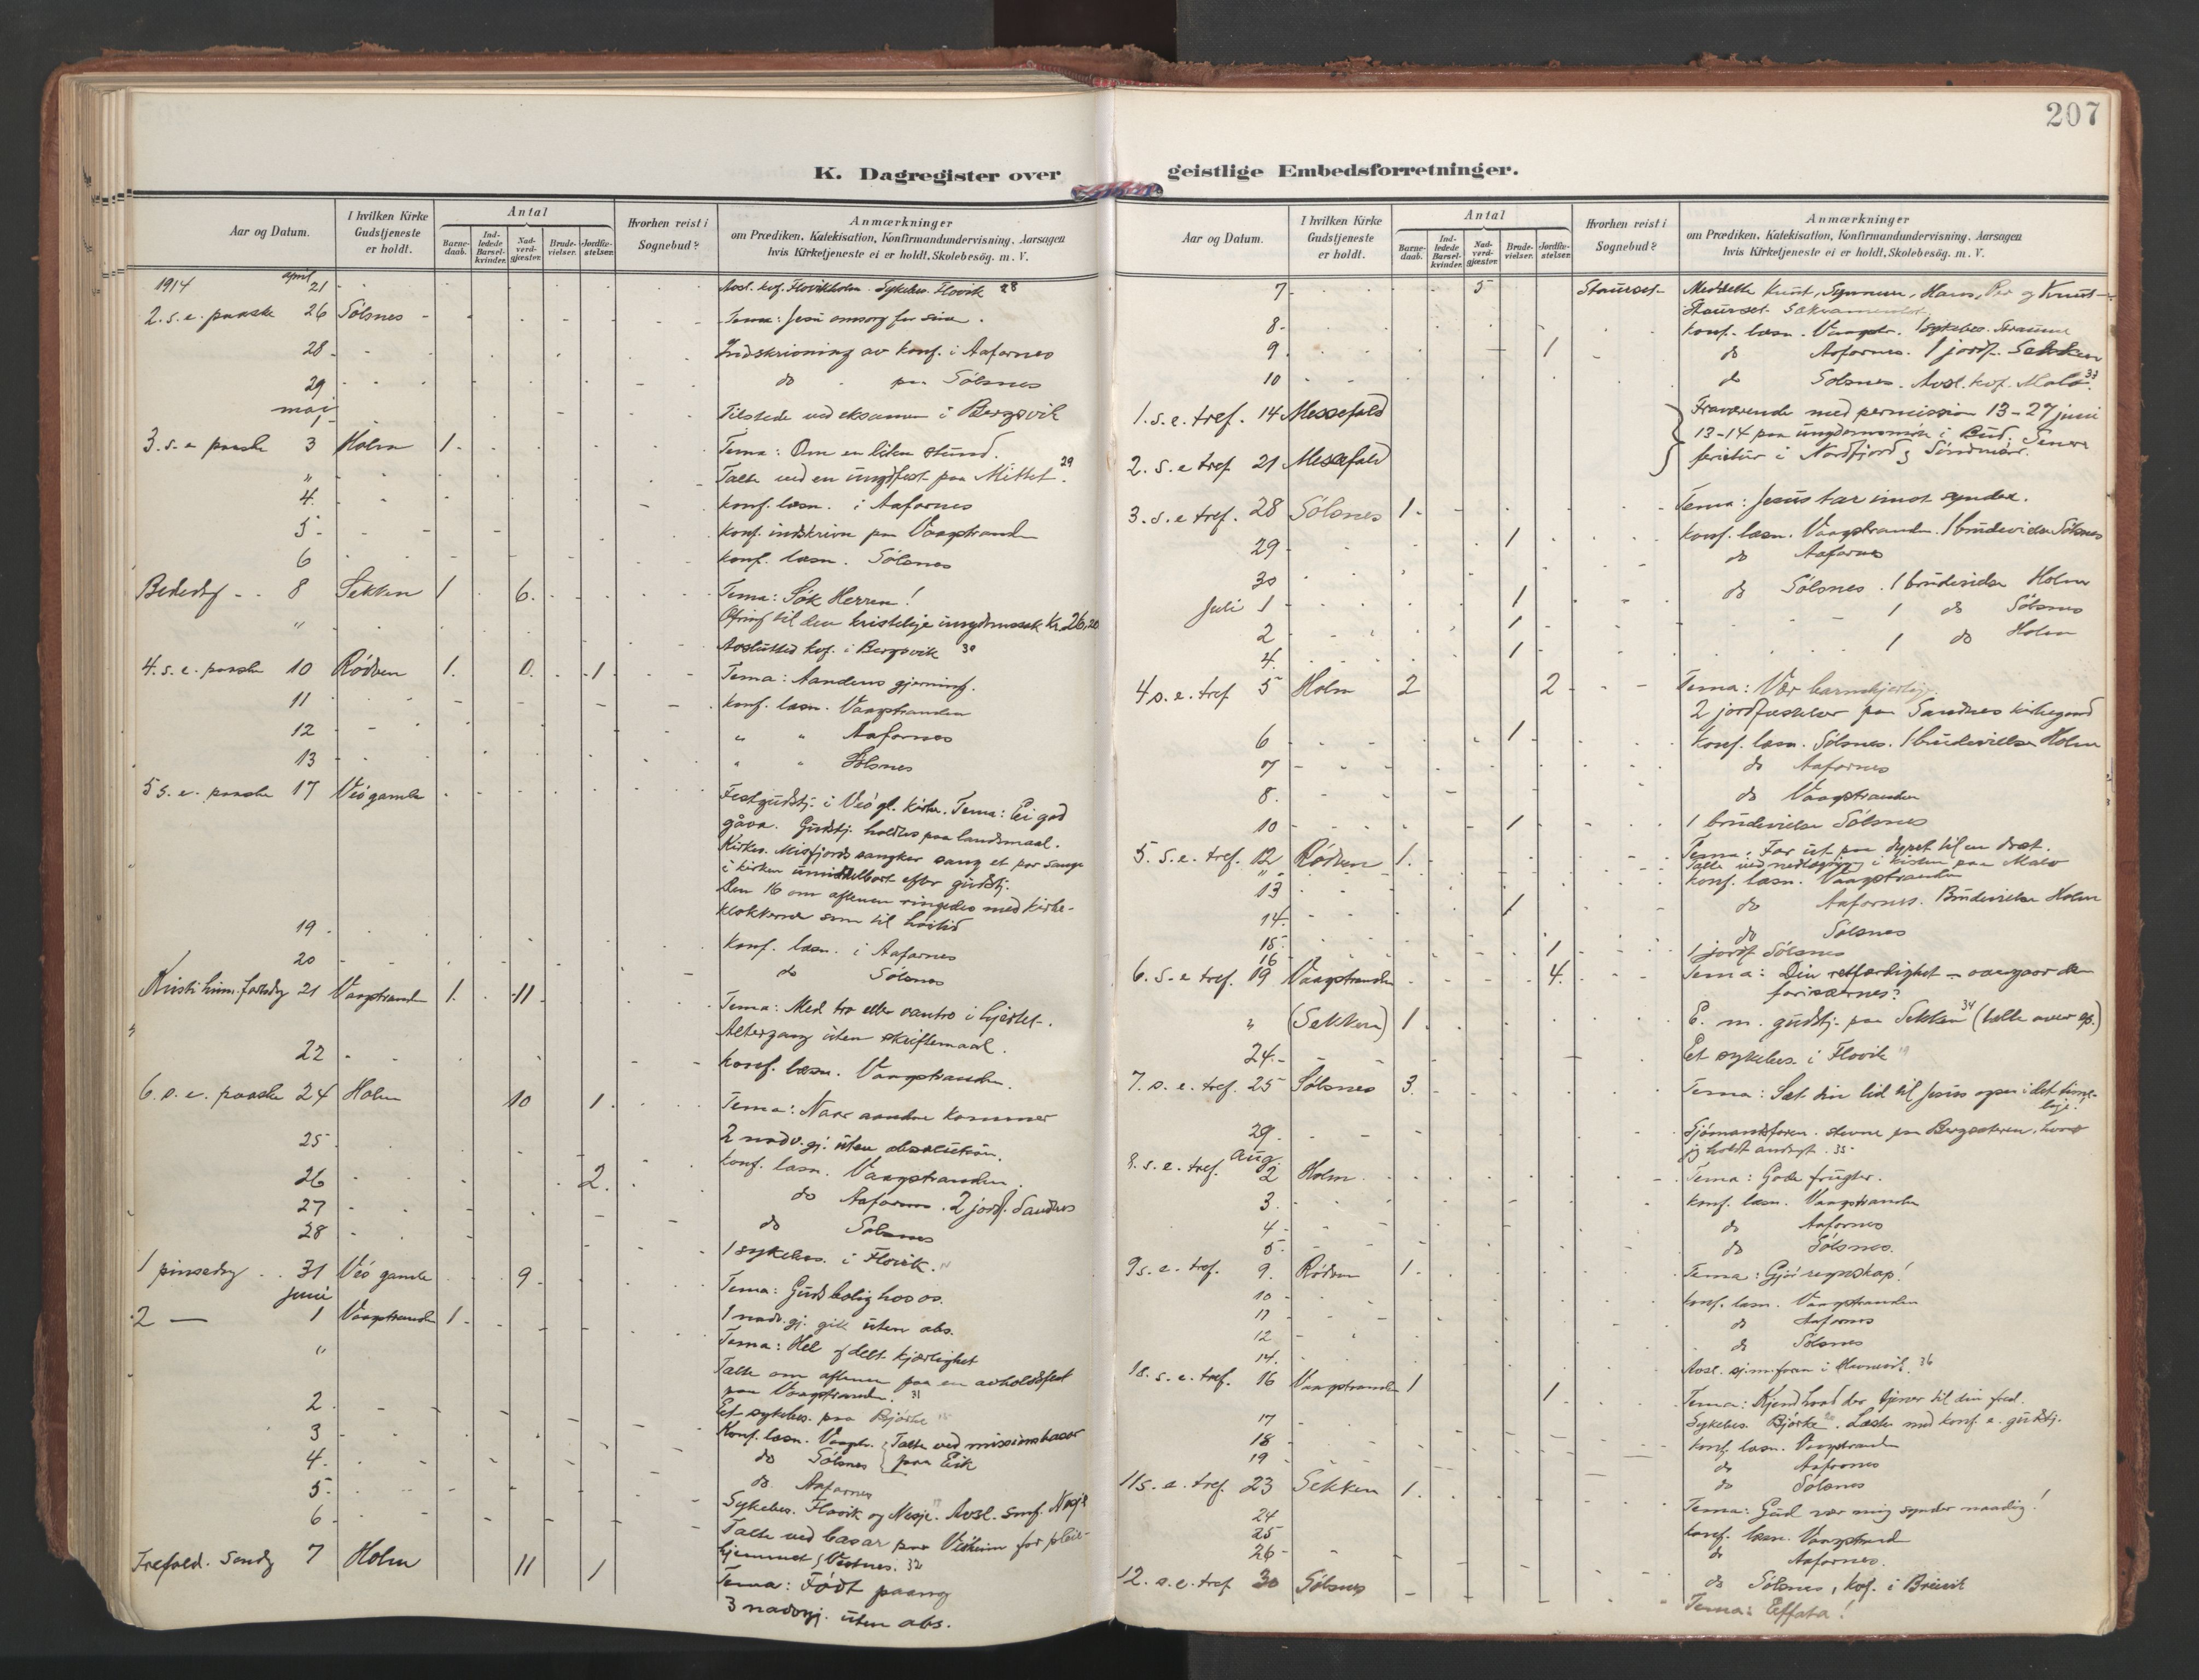 207
K. Dagregister over
geistlige Embedsforretninger.
Aar og Datum.
I hvilken Kirke Gudstjeneste er holdt.
Antal
Barne-daab.
Ind-ledede Barsel-kvinder.
Nad-verd-gjæster.
Brude-vielser.
Jordfæ-stelser.
Hvorhen reist i Sognebud?
Anmærkninger
om Prædiken, Katekisation, Konfirmandundervisning, Aarsagen
hvis Kirketjeneste ei er holdt, Skolebesög, m. V.
1914 april 21 Avsl. kof. Flovikholm. Sykebes. Flovik 28
2. s. e. paaske 26 Sölsnes Tema: Jesu omsorg for sine.
28 Indskrivning av konf. i Aafarnes
29 do paa Sölsnes
maj
1 Tilstede ved eksamen i Bergsvik
3. s. e. paaske 3 Holm 1 Tema: Om en liten stund.
" Talte ved en ungd.fest paa Mittet. 29
4. Konf. læsn. i Aafarnes
5 Konf. indskrivn paa Vaagstranden
6 Konf. læsn. Sölsnes
Bededag 8 Sekken 1 6. Tema: Søk Herren!
" Ofring til den kristelige ungdomssak Kr. 26,20
Avsluttet kof. i Bergsvik 30
4. s. e. paaske 10 Rödven 1. 0. 1 Tema: Aandens gjerning.
11 Konf. læsn. Vaagstranden
12 " " Aafarnes
13 " " Sölsnes
5 s. e. paaske 17 Veö gamle Festgudstj. i Veö gl. kirke. Tema: Ei god
gåva. Gudstj. holdtes paa landsmaal.
Kirkes. Misfjords sangkor sang et par sange
i kirken umiddelbart efter gudstj.
Den 16 om aftenen ringedes med kirke-
klokkerne som til höitid
19 Konf. læsn. i Aafarnes
20 do Sölsnes
Kristi himmelfartsdag 21 Vaagstranden 1. 11 Tema: Med tro eller vantro i hjertet.
" Altergang uten skriftemaal.
22 Konf. læsn. Vaagstranden.
6. s. e. paaske 24 Holm 10 1. Tema: Naar aanden kommer
2 nadv. gj. uten absolution.
25 Konf. læsn. Vaagstranden.
26 2. do Aafarnes. 2 jordf. Sandnes
27 do Sölsnes
28 1 sykebes. i Flovik.
1 pinsedag 31 Veö gamle 9 Tema: Guds bolig hos os.
1 nadv. gj. gik uten abs.
juni
2 — 1 Vaagstranden 1 Tema: Hel og delt kjærlighet
" Talte om aftenen paa en avholdsfest
paa Vaagstranden. 31
2 Et sykebes. paa Bjørke
3 Konf. læsn. Vaagstr. Talte ved missionsbasar
4. do Sölsnes paa Eik
5 do. Aafarnes
6 Sykebes. Flovik og Nesje. Avsl. smf. Nesje
Talte ved basar paa Veöheim for pleie-
hjemmet, Vestnes. 32
Trefold. Söndag 7 Holm 11 1 Tema: Født paany
3 nadvgj. uten abs.
7 5 Staurset Meddelte Knut, Synnøve, Hans, Per og Knut
Staurset Sakramentet.
8 Konf. læsn. Vaagstr. 1 sykebes. Straume
9 1 do Aafarnes. 1 jordf. Sekken
10 do Sölsnes. Avsl. kof. Malö. 33
1. s. e. tref. 14 Messefald Fraværende med permission 13-27 juni
13-14 paa ungdomsmöte i Bud. Senere
2. s. e. tref. 21 Messefald ferietur i Nordfjord og Söndmör.
3. s. e. tref. 28 Sölsnes 1 Tema: Jesus tar imot syndere.
29 1 Konf. læsn. Vaagstranden. 1 brudevielse Sölsnes
30 do Aafarnes
Juli 1 1 do Sölsnes. 1 brudevielse Holm
2 1 1 do Sölsnes
4. 1 1 do Holm
4 s. e. tref 5 Holm 2 2 Tema: Vær barmhjertige.
2 jordfæstelser paa Sandnes kirkegaard
6 1 Konf. læsn. Sölsnes. 1 brudevielse Holm
7 do Aafarnes
8. do Vaagstranden
10 1 1 brudevielse Sölsnes
5. s. e. tref. 12 Rödven 1. Tema: Far ut paa dypet til en dræt.
" Talte ved nedlægning i kisten paa Malö
13 Konf. læsn. Vaagstranden
14 1 do Aafarnes. Brudevielse Holm
15 do Sölsnes
16 1 1 jordf Sölsnes
6. s. e. tref. 19 Vaagstranden 4. Tema: Din retfærdighet – overgaar den
farisæernes?
" (Sekken) 1 E. m. gudstj. paa Sekken 34
24. Et sykebes. i Flovik 19
7. s. e. tref. 25 Sölsnes 3. Tema: Sæt din lid til Jesus ogsaa i det time-
lige!
29. Sjömandsforen. stevne paa Bergsæteren, hvor
jeg holdt andagt. 35
8. s. e. tref. Aug. 2 Holm Tema: Gode frugter.
3. Konf. læsn. Vaagstranden
4 do Aafarnes
5 do Sölsnes.
9 s. e. tref. 9. Rödven 1. Tema: Gjör regnskap!
10 Konf. læsn. Vaagstranden
11 do Aafarnes
12 do Sölsnes
14. 36
10. s. e. tref. 16 Vaagstranden 1 1 Tema: Kjend hvad der tjener til din fred.
Sykebes. Bjørke. Læste med konf. e. gudstj.
17 Konf. læsn. Vaagstranden
18 do Aafarnes
19 do Sölsnes
11 s. e. tref. 23 Sekken 1. Tema: Gud vær mig synder naadig!
24 Konf. læsn. Vaagstrand
25 do Aafarnes.
26 do Sölsnes, kof. i Breivik
12. s. e. tref 30 Sölsnes Tema: Effata!